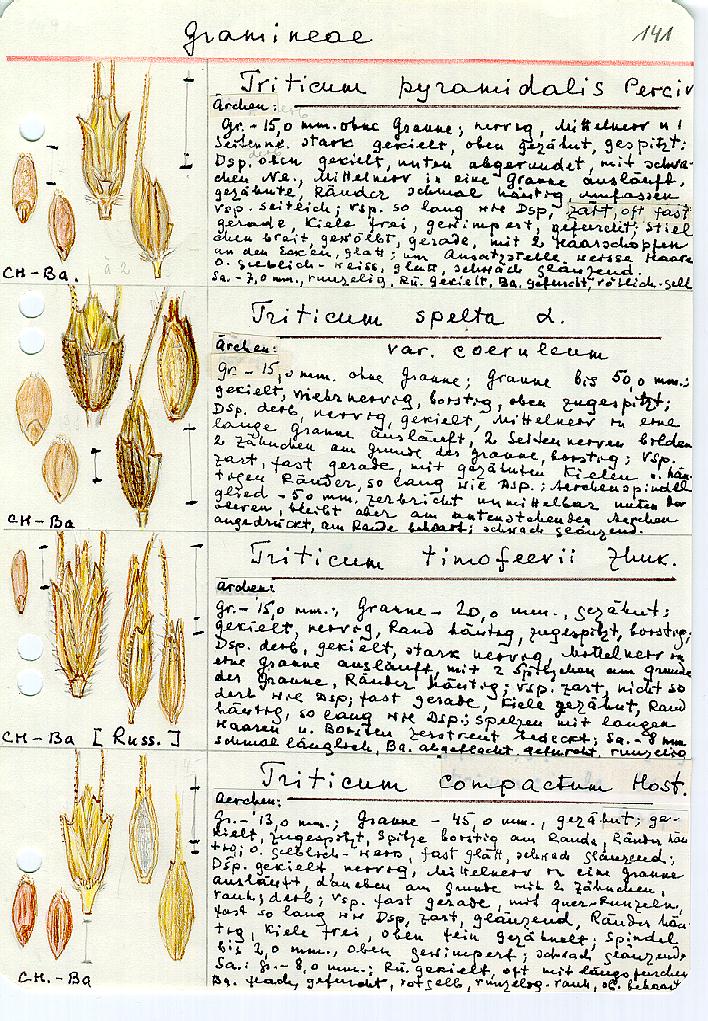 Gramineae
141
Triticum pyramidalis Perciv
Ärchen:
Gr.- 15,0 mm. ohne Granne; nervig, Mittelnerv u!
Seitenne. stark gekielt, oben gezähnt, gespitzt;
Dsp. oben gekielt, unten abgerundet, mit schwa-
chen Ne., Mittelnerv in eine Granne ausläuft,
gezähnte, Ränder schmal häutig umfassen
Vsp. seitlich; Vsp. so lang wie Dsp, zart, oft fast
gerade, Kiele frei, gewimpert, gefurcht; Stiel
chen breit, gewölbt, gerade, mit 2 Haarschöpfen
an den Ecken, glatt; um Ansatzstelle weisse Haare
o. gelblich-weiss, glatt, schwach glänzend.
Sa.- 7,0 mm., runzelig, Rü. gekielt, Ba. gefurcht, rötlich-gelb
CH-Ba.
à 2
Triticum spelta L.
var. coeruleum
Ärchen:
Gr.- 15,0 mm. ohne Granne; Granne bis 50,0 mm.;
gekielt, mehrnervig, borstig, oben zugespitzt;
Dsp. derb, nervig, gekielt, Mittelnerv in eine
lange Granne ausläuft, 2 Seitennerven bilden
2 Zähnchen am Grunde der Granne, borstig; Vsp.
zart, fast gerade, mit gezähnten Kielen u. häu-
tigen Ränder, so lang wie Dsp.; Aerchenspindel
glied - 5,0 mm, zerbricht unmittelbar unter der
oberen, bleibt aber am untenstehenden Aerchen
angedrückt, am Rande behaart; schwach glänzend.
CH-Ba
Triticum timofeevii Zhuk.
Ärchen:
Gr.- 15,0 mm.; Granne - 20,0 mm., gezähnt;
gekielt, nervig, Rand häutig, zugespitzt, borstig;
Dsp. derb, gekielt, stark nervig, Mittelnerv in
eine Granne ausläuft, mit 2 Spitzchen am Grunde
der Granne, Ränder häutig; Vsp. zart, nicht so
derb wie Dsp; fast gerade, Kiele gezähnt, Rand
häutig, so lang wie Dsp.; Spelzen mit langen
Haaren u. Borsten zerstreut bedeckt; Sa.- 8 mm
schmal länglich, Ba. abgeflacht, gefurcht, runzelig
CH-Ba [Russ.]
Triticum compactum Host.
Aerchen:
Gr.- 13,0 mm.; Granne - 45,0 mm., gezähnt; ge-
kielt, zugespitzt, Spitze borstig am Rande, Ränder häu
tig; o. gelblich-weiss, fast glatt, schwach glänzend;
Dsp. gekielt, nervig, Mittelnerv in eine Granne
ausläuft, daneben am Grunde mit 2 Zähnchen,
rauh, derb; Vsp. fast gerade, mit quer-Runzeln,
fast so lang wie Dsp, zart, glänzend, Ränder häu-
tig, Kiele frei, oben fein gezähnelt; Spindel
bis 2,0 mm., oben gewimpert; schwach glänzend
Sa.: gr.- 8,0 mm.; Rü. gekielt, oft mit längsfurchen
Ba. flach, gefurcht, rotgelb, runzelig-rauh, ob. behaart
CH.-Ba